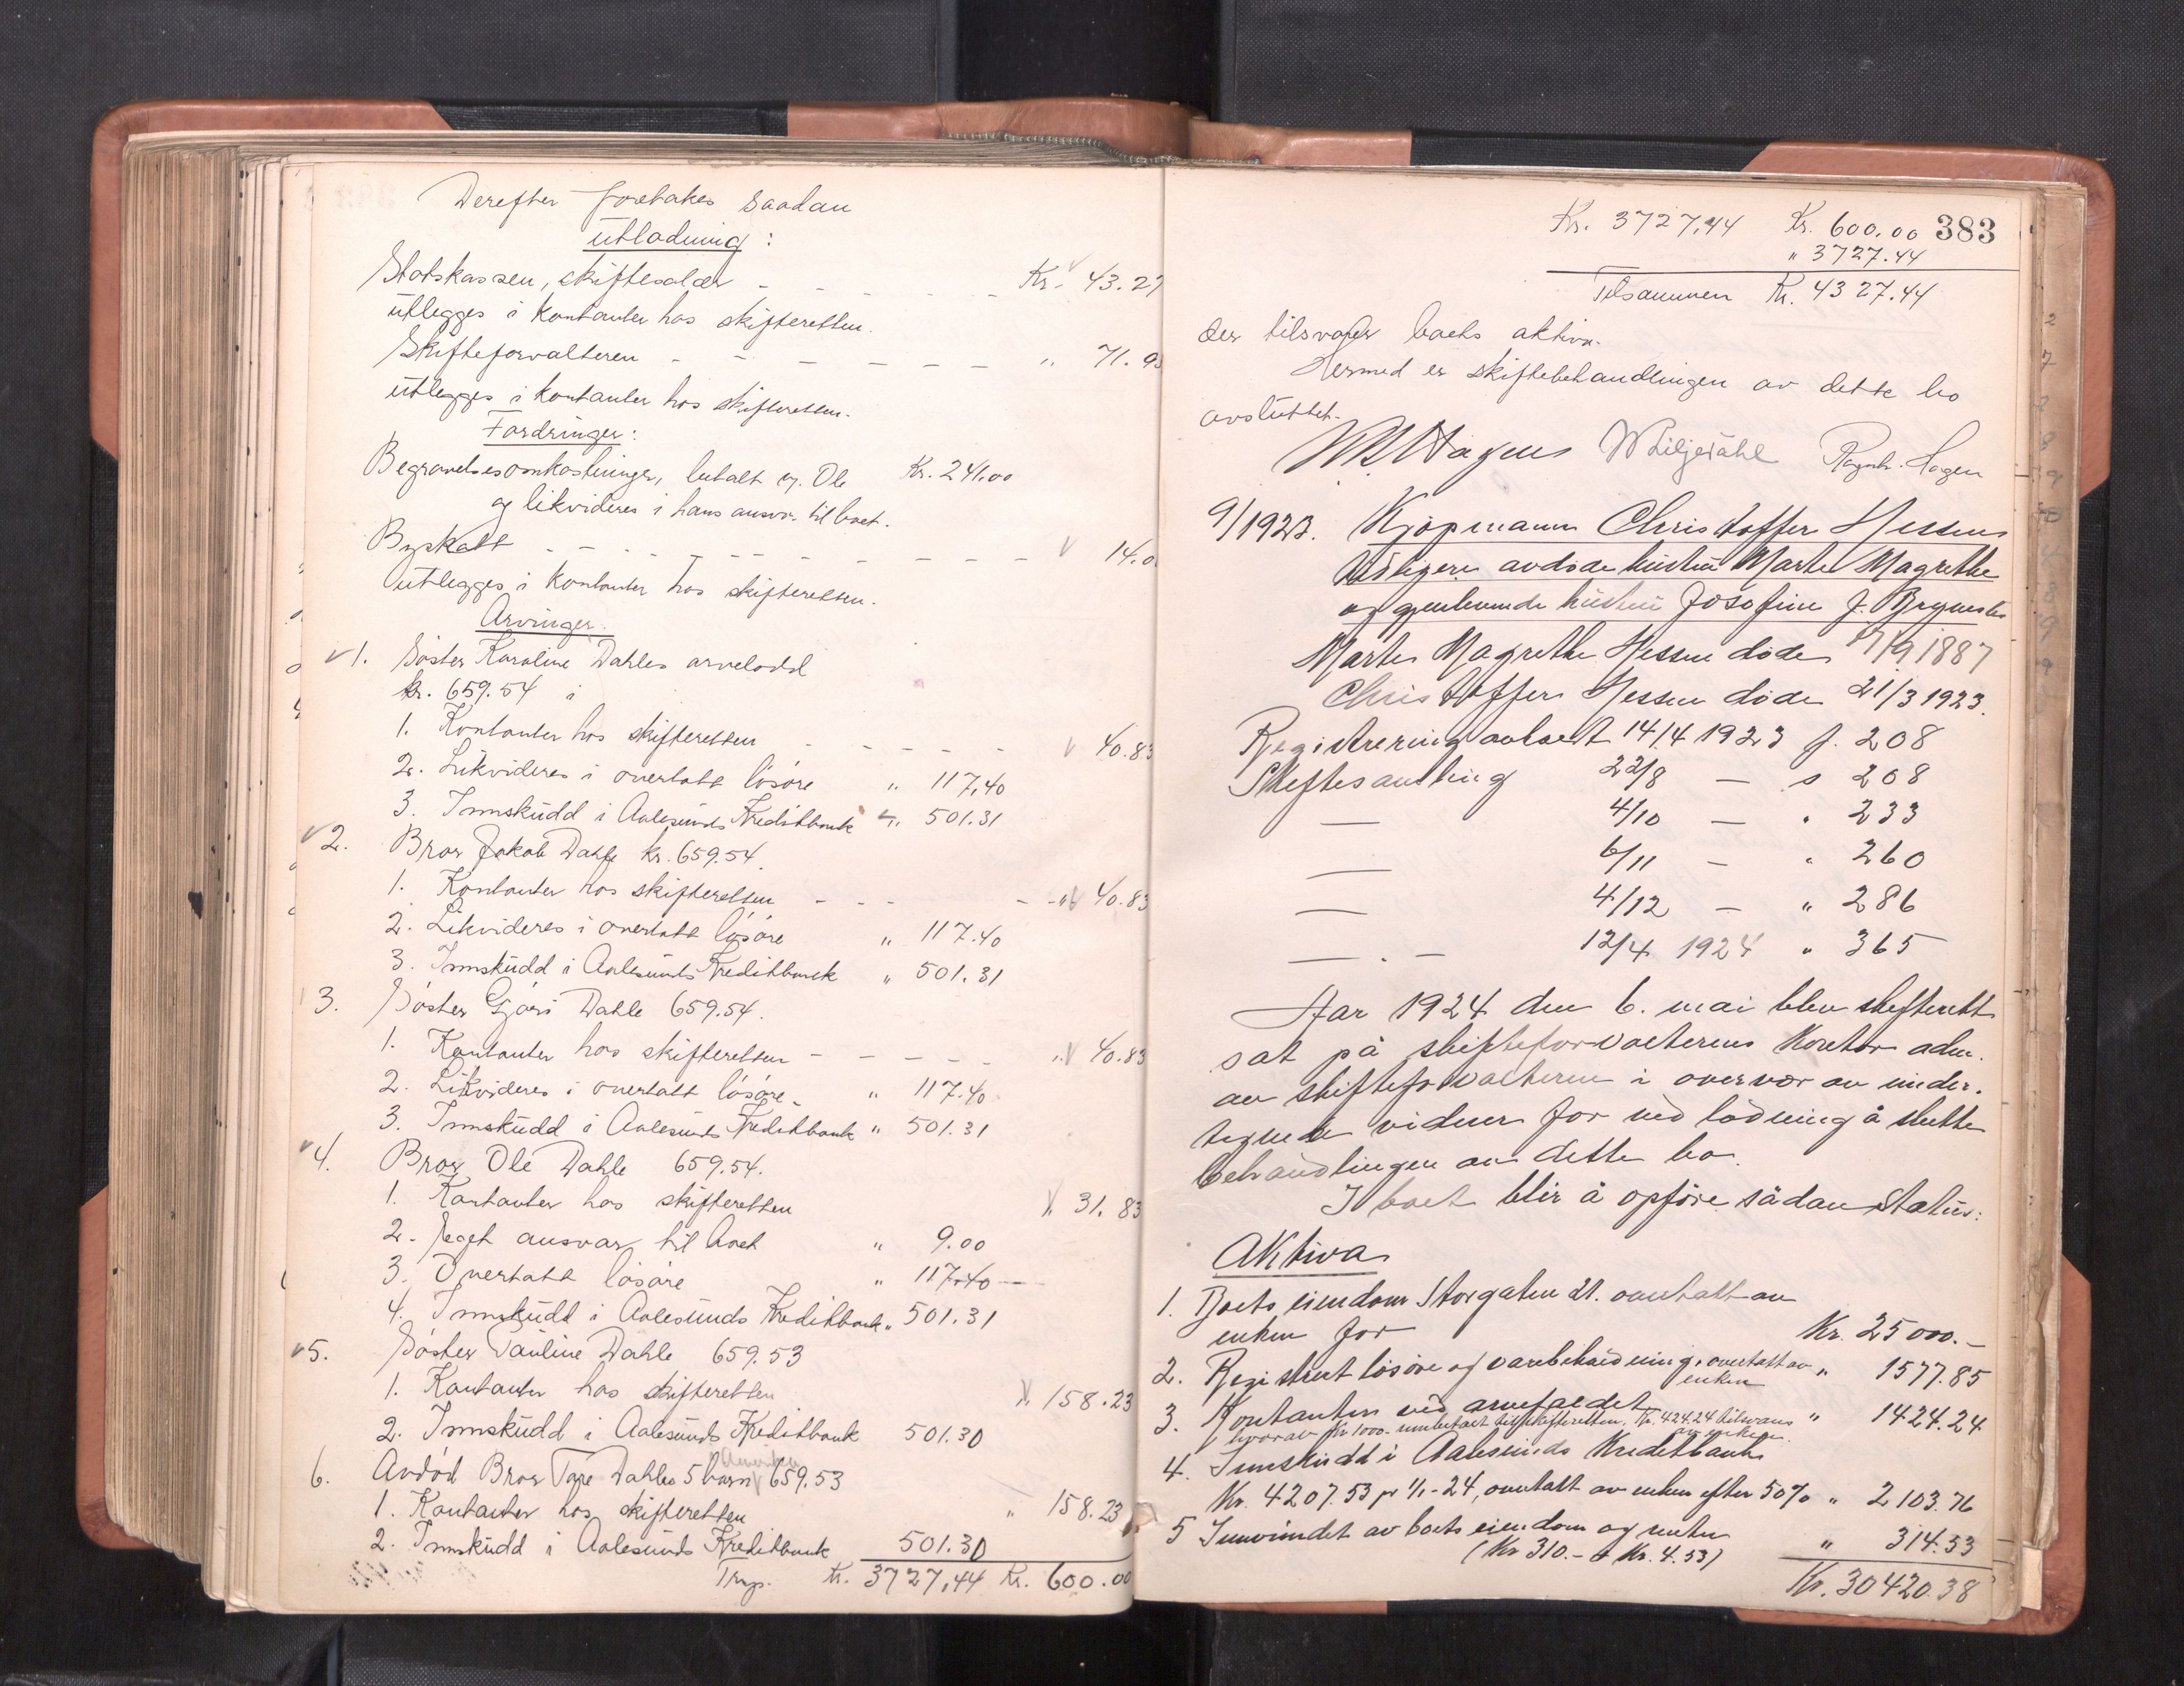 Derefter foretakes saadan
utlodning:
Statskassen, skiftesalær - - - - - - Kr. 43.27
utlegges i kontanter hos skifteretten.
Skifteforvalteren - - - - - - - " 71.93
utlegges i kontanter hos skifteretten.
Fordringer:
Begravelsesomkostninger, betalt av Ole Kr. 241.00
og likvideres i hans ansvar til boet.
Byskatt - - - - - - - - - - 14.0
utlegges i kontanter hos skifteretten.
Arvinger:
1. Søster Karoline Dahles arvelodd
kr. 659.54 i
1. Kontanter hos skifteretten - - - - - 40.83
2. Likvideres i overtatt løsøre " 117.40
3. Innskudd i Aalesunds Kreditbank " 501.31
2. Bror Jakob Dahle kr. 659.54.
1. Kontanter hos skifteretten - - - - - " 40.83
2. Likvideres i overtatt løsøre " 117.40
3. Innskudd i Aalesunds Kreditbank " 501.31
3. Søster Gjøri Dahle 659.54.
1. Kontanter hos skifteretten - - - - - " 40.83
2. Likvideres i overtatt løsøre - " 117.40
3. Innskudd i Aalesunds Kreditbank " 501.31
4. Bror Ole Dahle 659.54.
1. Kontanter hos skifteretten " 31.83
2. Eget ansvar til boet " 9.00
3. Overtatt løsøre " 117.40 -
4. Innskudd i Aalesunds Kreditbank " 501.31
5. Søster Pauline Dahle 659.53
1. Kontanter hos skifteretten " 158.23
2. Innskudd i Aalesunds Kreditbank 501.30
6. Avdød Bror Tore Dahles 5 barn 659.53
1. Kontanter hos skifteretten " 158.23
2. Innskudd i Aalesunds Kreditbank 501.30
Trsp. Kr. 3727.44 Kr. 600.00
Kr. 3727.44 Kr. 600.00 383
" 3727.44
Tilsammen Kr. 4327.44
der tilsvarer boets aktiva.
Hermed er skiftebehandlingen av dette bo
avsluttet.
W Liljedahl Ragnh. Hagen
9/1923. Kjøpmann Christoffer Hessens
tidligere avdøde hustru Marte Magrethe
og gjenlevende hustru Josefine J.
Marte Magrethe Hessen døde 17/9 1887
Christoffer Hessen døde 21/3 1923.
Registrering avholdt 14/4 1923 f. 208
Skiftesamling 22/8 — s 208
— 4/10 — " 233
— 6/11 — " 260
— 4/12 — " 286
— " — 12/4 1924 " 365
Aar 1924 den 6. mai blev skifterett
sat på skifteforvalterens kontor adm.
av skifteforvalteren i overvær av under-
tegnede vidner for ved lodning å slutte
behandlingen av dette bo.
I boet blir å opføre sådan status:
Aktiva
1. Boets eiendom Storgaten 21. overtatt av
enken for Kr. 25000.-
2. Registrert løsøre og varebeholdning, overtatt av " 1577.85
enken
3. Kontanter ved arvefaldet " 1424.24
hvorav kr 1000.- innbetalt til skifteretten, kr. 424.24 tilsvares
av enken.
4. Innskudd i Aalesunds Kreditbank
Kr. 4207.53 pr 1/1-24, overtatt av enken efter 50% " 2103.76
5 Innvundet av boets eiendom og renter " 314.53
(Kr 310.- + Kr. 4.53)
Kr. 30420.38